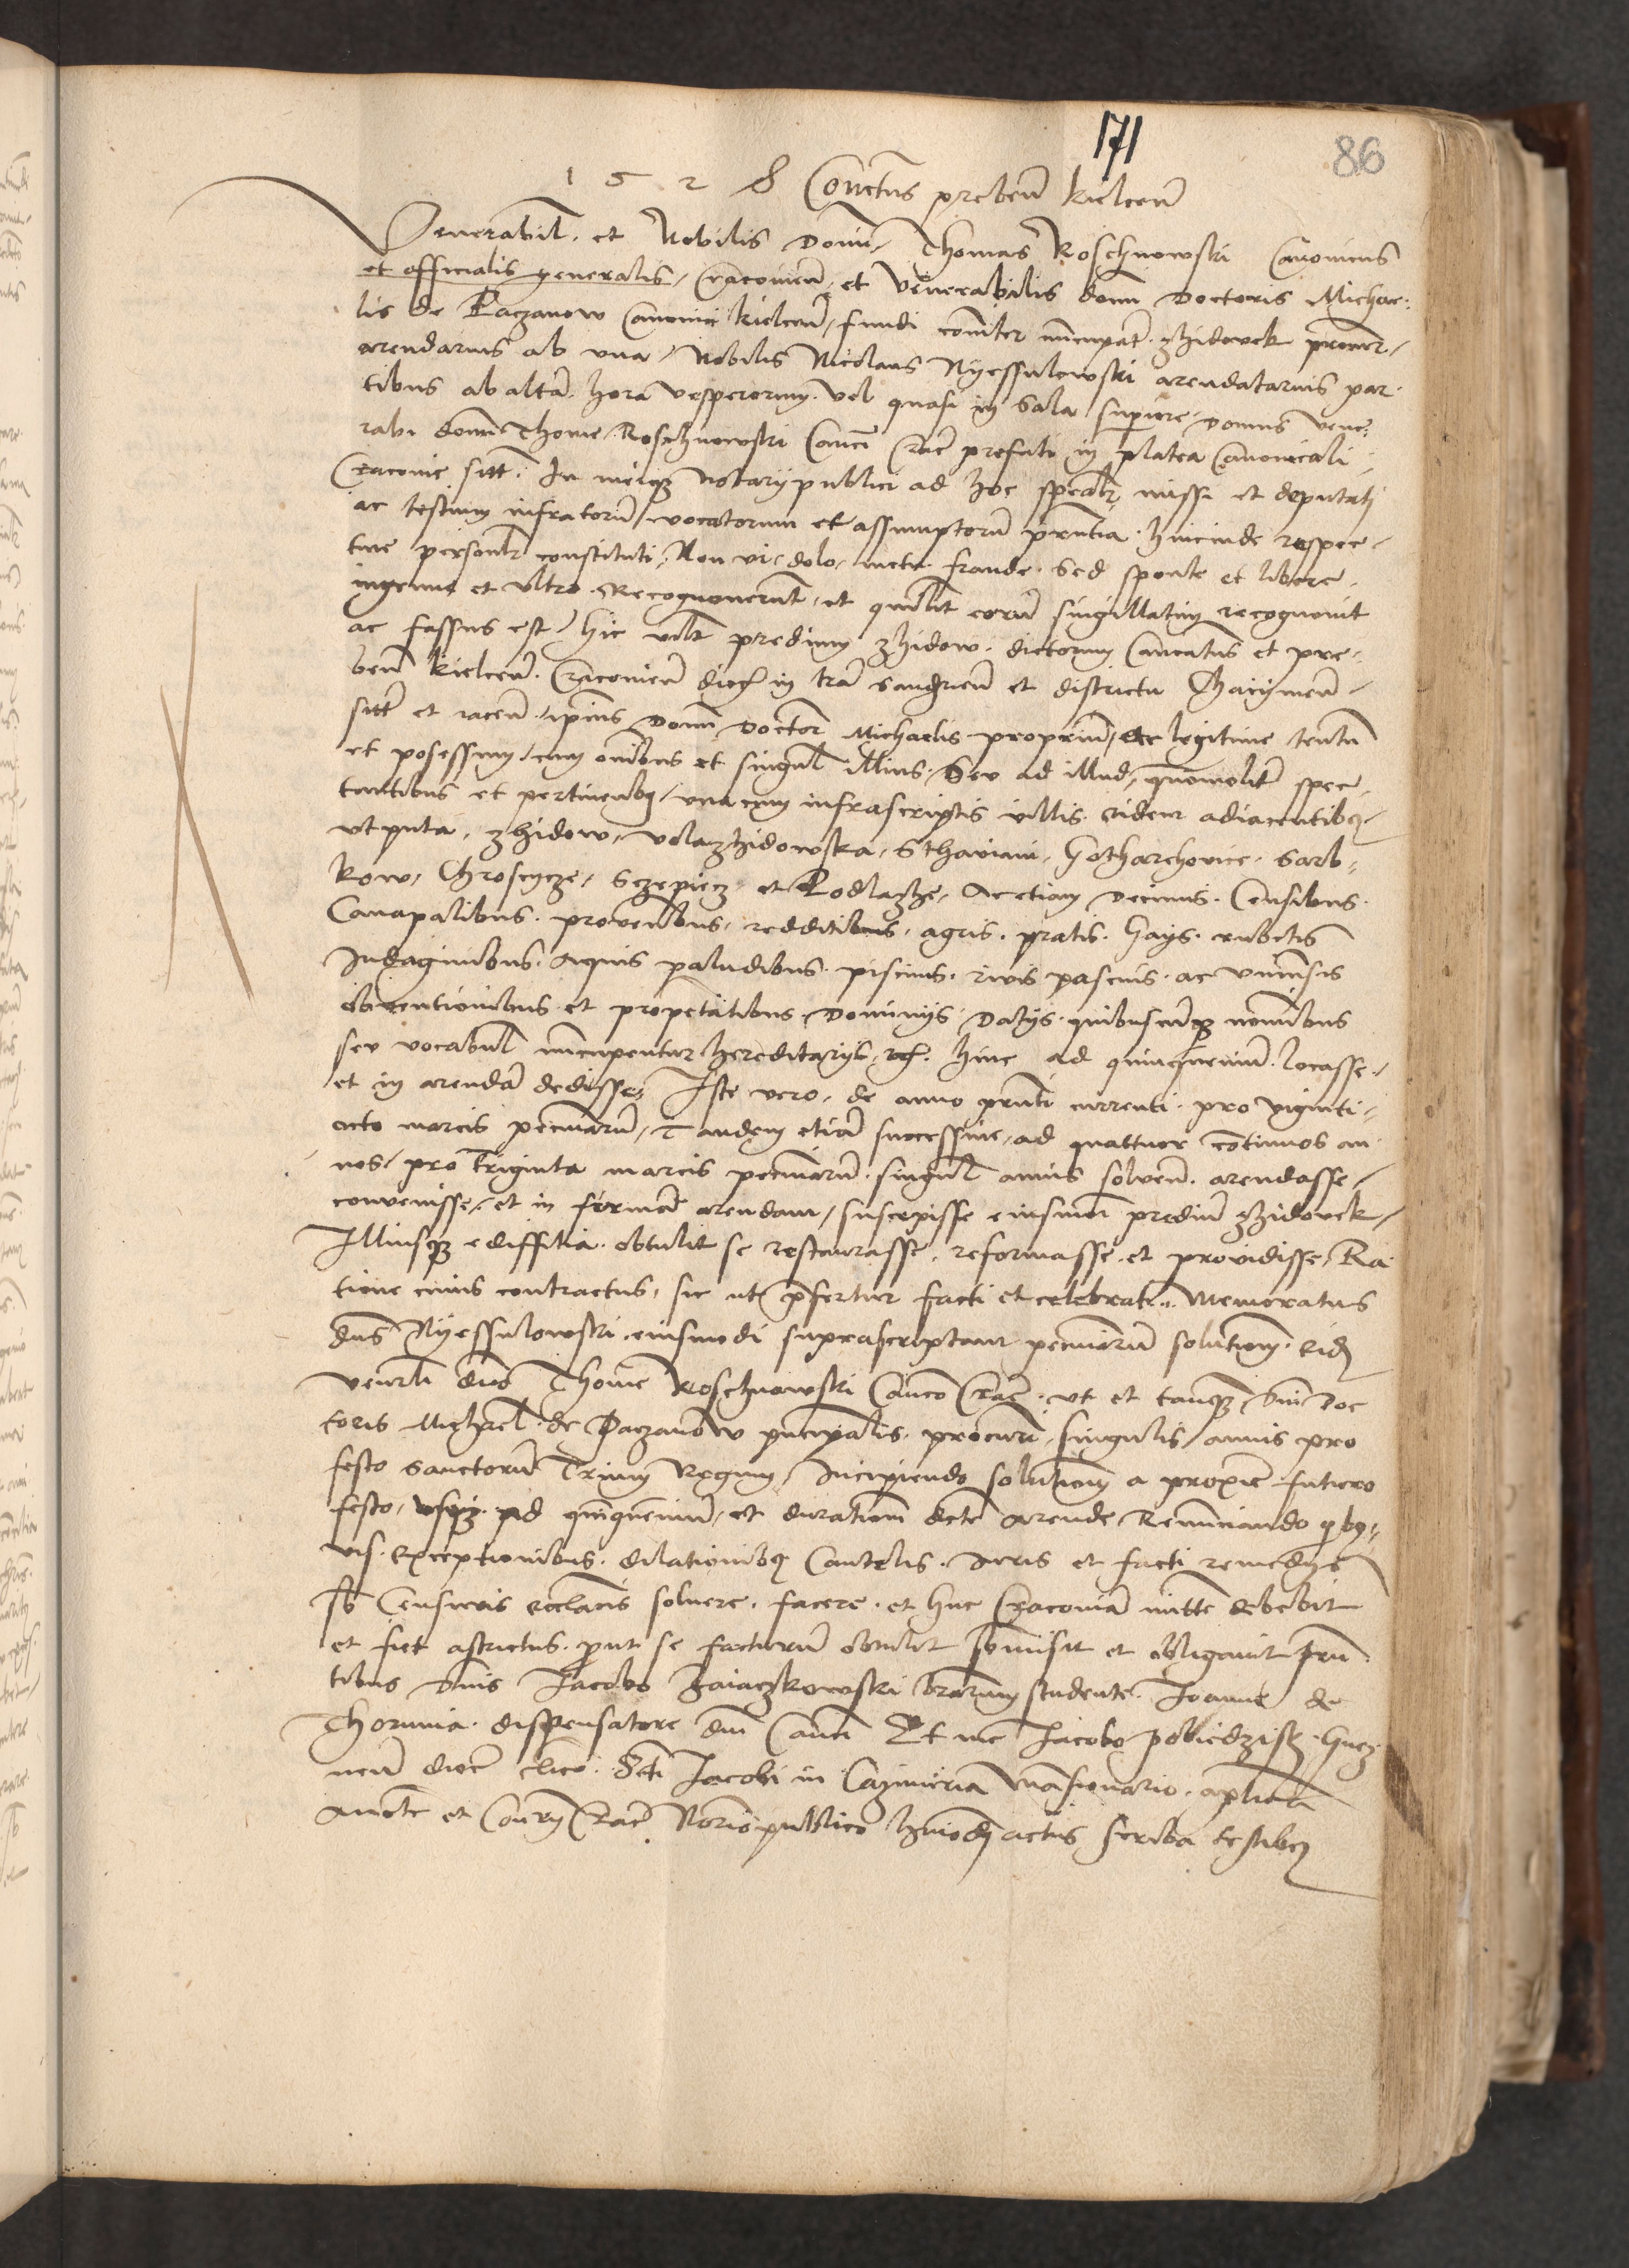 171
86
1528 Contractus preben kielcen
Venerabil. et Nobilis Domi. Thomas Roschnowski Canonicus
et officialis generalis Cracovien et Venerabilis domi Doctoris Michae:
lis de Paczanow Canonici kielcen, fundi comiter nuncupat. zhidowek
arendarius ab una, Nobilis Nicolaus Nyessulowski arendatarius par
tibus ab altera. hora vesperorum vel quasi in Sala superiore Domus vene:
rabi domi Thome Roschnowski Canci Crac prefati in platea Canonicali
Cracovie sitt. In meiq Notarij publici ad hoc specialr missi et deputati
ac testium infratorum vocatorum et assumptorum prntia hincinde respec
tive personalr constituti. Non vi dolo metu fraude. Sed sponte et libere
ingenue et ultro Recognoverunt, et quilibt eorum singillatim recognovit
ac fassus est. Hic predium zhidow. dictorum Canonicatus et pre
ben kielcen. Cracovien dioc in tra sandmien et districtu Chacinien
sitt et iacen ipsius Domi Doctor Michaelis proprium, legitime tentu
et posessum, cum omibus et singul illius. Seu ad illud quomolit spec
tantibus et pertinentibus, una cum infrascriptis villis eidem adiacentibus
utputa, zhidow, Volazhidowska, Sthaviani, Gotharthovice. Sarb
kow, Chroscycze, Sczepiecz et Podlazhe, Ac etiam Decimis. Censibus
Canapalibus. proventibus, redditibus, agris. pratis. Gays. rubetis
Indaginibus. aquis paludibus piscinis. rivis pascuis. ac universis
obventionibus et propetatibus. Dominijs Datijs. quibuscumq nominibus
seu vocabul nuncupentur hereditarijs hinc ad quinquenium locasse
et in arendam dedisse. Iste vero, de anno prnti currenti. pro viginti
octo marcis pecuniarum, Tandem etiam successive, ad quattuor continuos an
nos pro Triginta marcis pecuniarum singul annis solven. arendasse
convenisse et in formam arendam, suscepisse eiusmoi predium zhidovek,
Illiusq ediffitia obtulit se restaurasse, reformasse et providisse, Ra
tione cuius contractus, sic ut prefertur facti et celebrati. Memoratus
dns Nyessulowski eiusmodi suprascriptam pecuniarum solutionem eidem
venrli dno Thome Roschnowski Canco Crac. ut et tanq dni Doc
toris Michael de Paczanow principalis. procuri singulis annis pro
festo Sanctorum Trium Regum, Incipiendo solutionem a proxie futuro
festo, usq ad quinquenium, et durationem dicte arende Renunciando qbus
vis. exceptionibus. dilationibus Cautelis. iuris et facti remedijs
sb Censuris ecclicis solvere. facere. et huc Cracoviam mitte debebit
et fiet astrictus. prout se facturum obtulit summisit et obligavit prn
tibus dnis Jacobo Zaiaczkowski lrarum studente. Joanne de
Thorunia dispensatore dni Canci Et me Jacobo pobiedzisk. Gnez
nen dioc clico. Scti Jacobi in Cazimiria mansionario. aplica
aucte et Coury Crac Norio publico huiodi actus scriba testibus